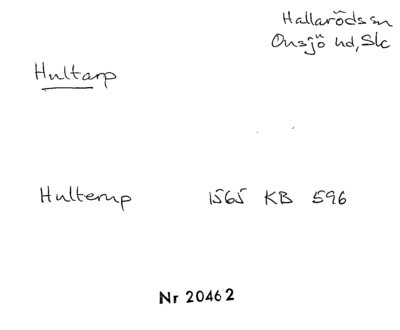 Hallaröds sn
Onsjö hd, Skc
Hultarp
Hulterup 1565 KB 596
Nr 20462